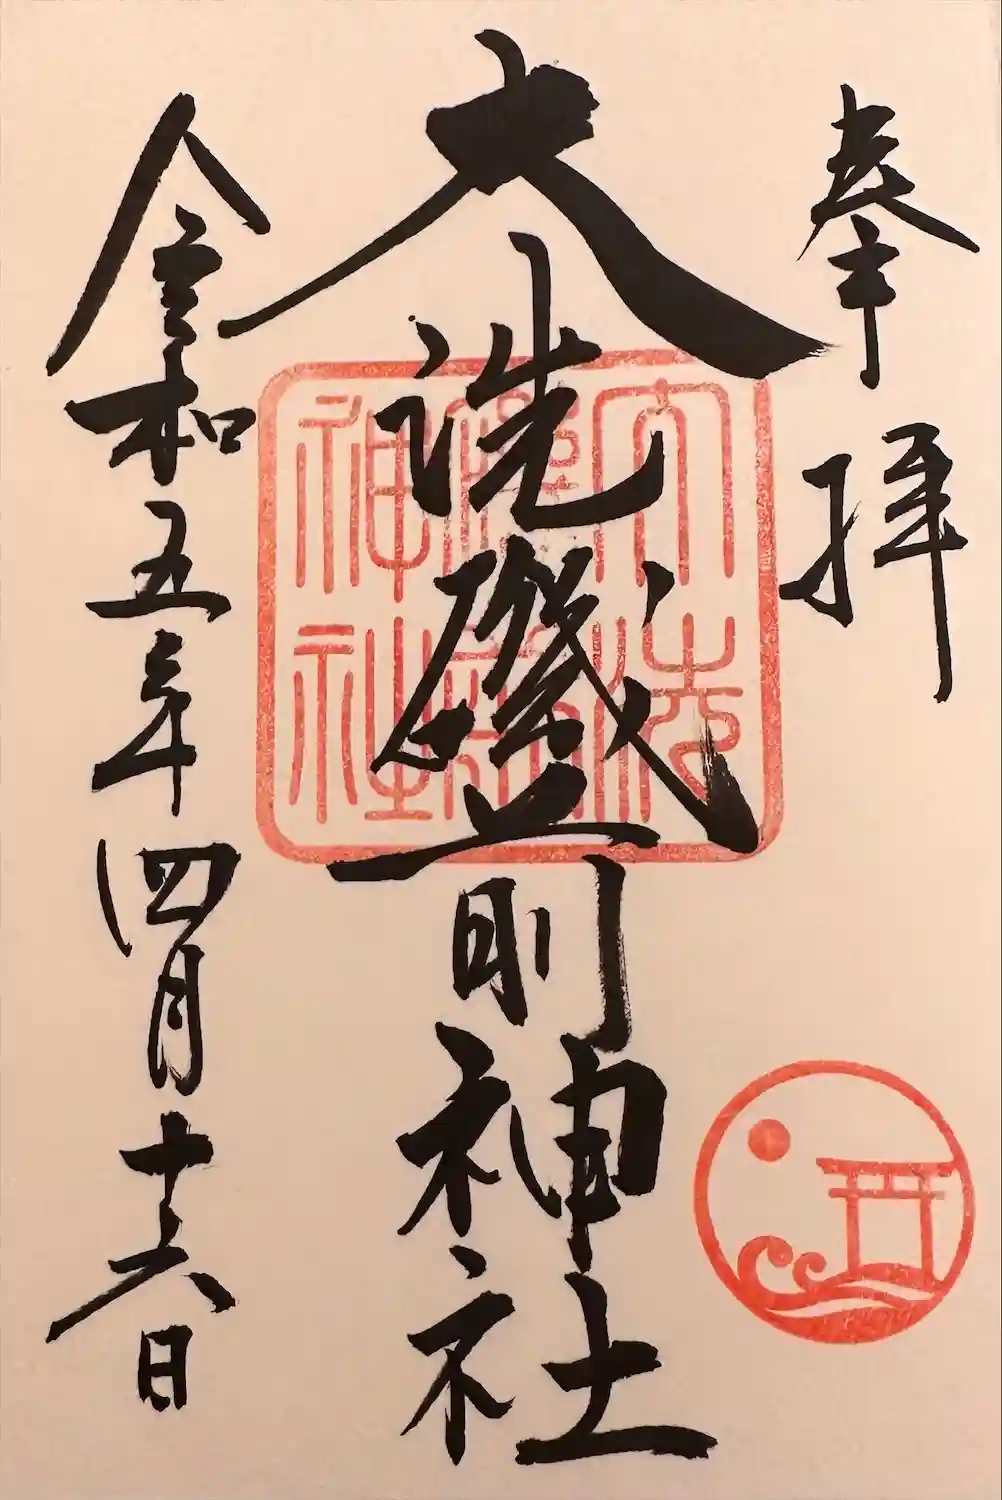 奉拝
大洗磯前神社
令和五年四月十六日
大洗磯前神社